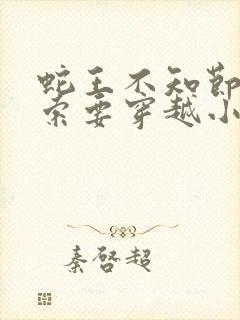 蛇王不知節
索要穿越小
秦啓超